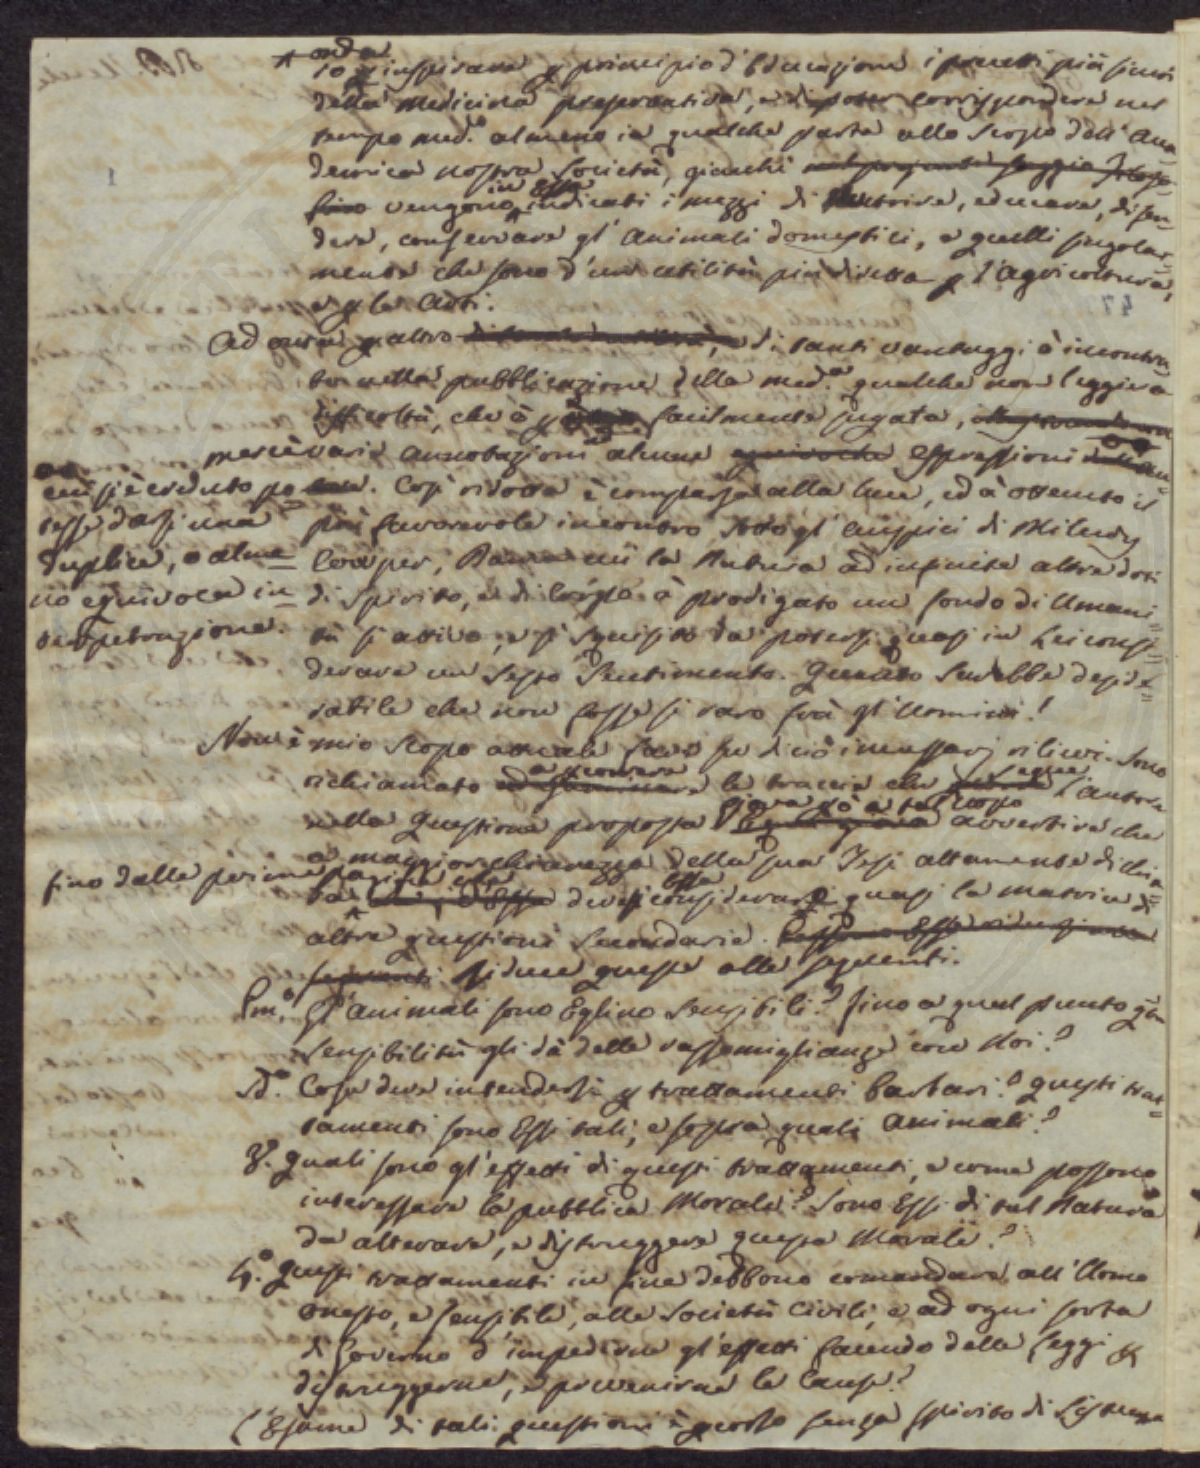 onde
inspirare p principio d'Educazione i precetti più sicuri
della medicina preservativa, e di corrispondere nel
tempo med.o almeno in qualche parte allo scopo dell'Acca=
demica nostra Società, giacchè
vengono in Essa indicati i mezzi di nutrire, educare, difen=
dere, conservare gl'Animali domestici, e quelli singolar=
mente che sono d'una utilità più diretta p l'agricoltura,
e p le Arti.
Ad onta p altro di tanti vantaggi à incontra
to nella pubblicazione della med.a qualche non leggiera
difficoltà, che à facilmente fugata,
mercè varie annotazioni alcune espressioni
cui si è creduto po=
tesse darsi una
duplice, o alme=
no equivoca in=
terpetrazione.
Così ridotta è comparsa alla luce, ed à ottenuto il
più favorevole incontro sotto gl'auspici di Milady
Cowper, Dama cui la Natura ad infinite altre doti
di spirito, e di corpo à prodigato un fondo di Umani=
tà sì attivo, e sì squisito da potersi quasi in Lei consi=
derare un sesto sentimento. Quanto sarebbe deside=
rabile che non fosse sì raro frà gl'Uomini!
Non è mio scopo attuale su di ciò i necessarj rilievi. Sono
richiamato a scorrere le traccie che segue l'autore
nella Questione proposta Giova p ò a tal scopo avvertire che
a maggior chiarezza della sua Tesi altamente dichia=
fino dalle prime pagine
ra essa doversi considerare quasi la matrice di
altre questioni secondarie.
Riduce queste alle seguenti.
Pm.o Gl'animali sono Eglino sensibili? fino a qual punto q.ta
sensibilità gli dà delle rassomiglianze con Noi?
2d.o Cosa deve intendersi p trattamenti barbari? questi trat=
tamenti sono Essi tali, e sopra quali Animali?
3.o quali sono gl'effetti di questi trattamenti, e come possono
interessare la pubblica Morale? Sono Essi di tal Natura
da alterare, e distruggere questa Morale?
4.o Questi trattamenti in fine debbono comandare all'Uomo
onesto, e sensibile, alle Società Civili, e ad ogni sorta
di Governo d'impedirne gl'effetti facendo delle leggi p
distruggerne, e prevenirne le Cause?
L'Esame di tali questioni è senza spirito di Sistema